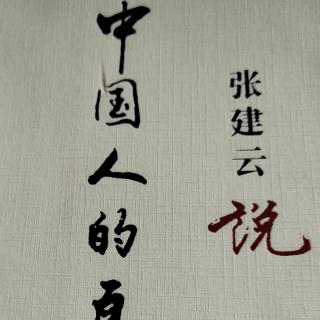 中国人的
张建云
说